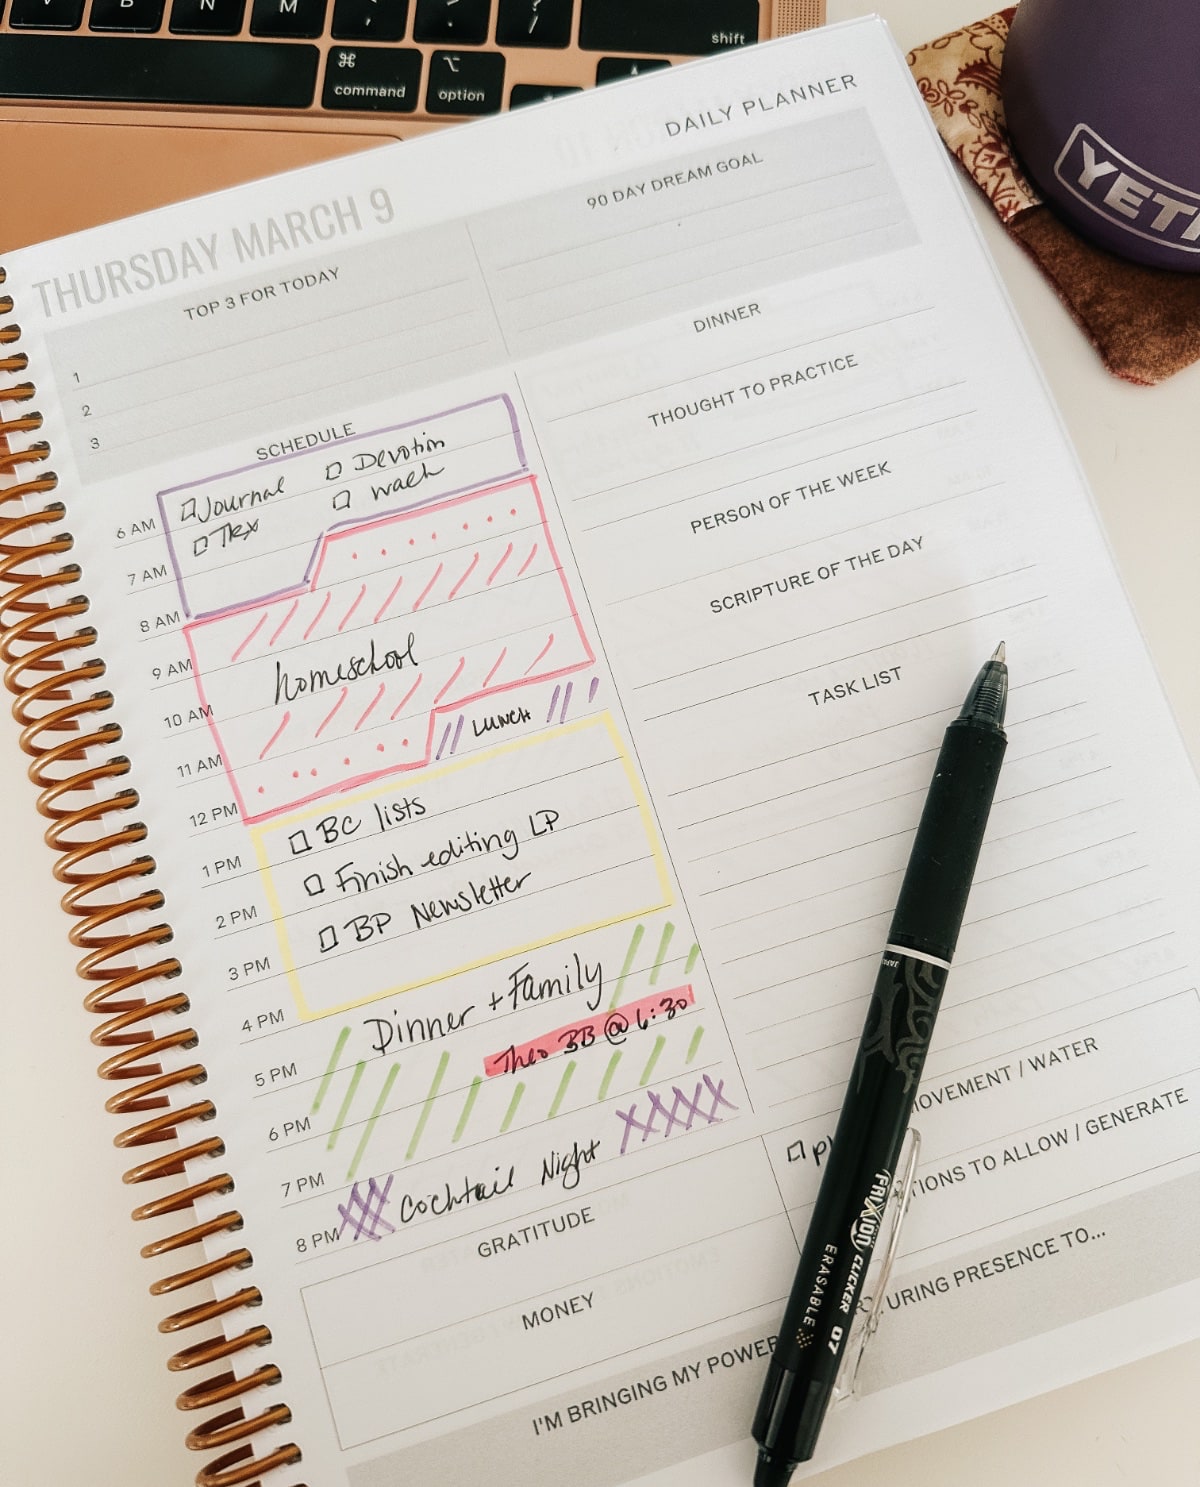 B N M < , > . ? /
shift
⌘ ⌥
command option
DAILY PLANNER
YETI
THURSDAY MARCH 9
TOP 3 FOR TODAY
1
2
3
90 DAY DREAM GOAL
SCHEDULE
Journal Devotion
6 AM TRX
7 AM
8 AM
9 AM homeschool
10 AM
11 AM LUNCH
12 PM
BC lists
1 PM Finish editing LP
2 PM BP Newsletter
3 PM
4 PM Dinner + Family
5 PM Theo BB @ 6:30
6 PM
7 PM
8 PM Cocktail Night
DINNER
THOUGHT TO PRACTICE
PERSON OF THE WEEK
SCRIPTURE OF THE DAY
TASK LIST
MOVEMENT / WATER
TIONS TO ALLOW / GENERATE
GRATITUDE
MONEY
I'M BRINGING MY POWER URING PRESENCE TO...
JAPAN
FRIXION CLICKER 07
ERASABLE